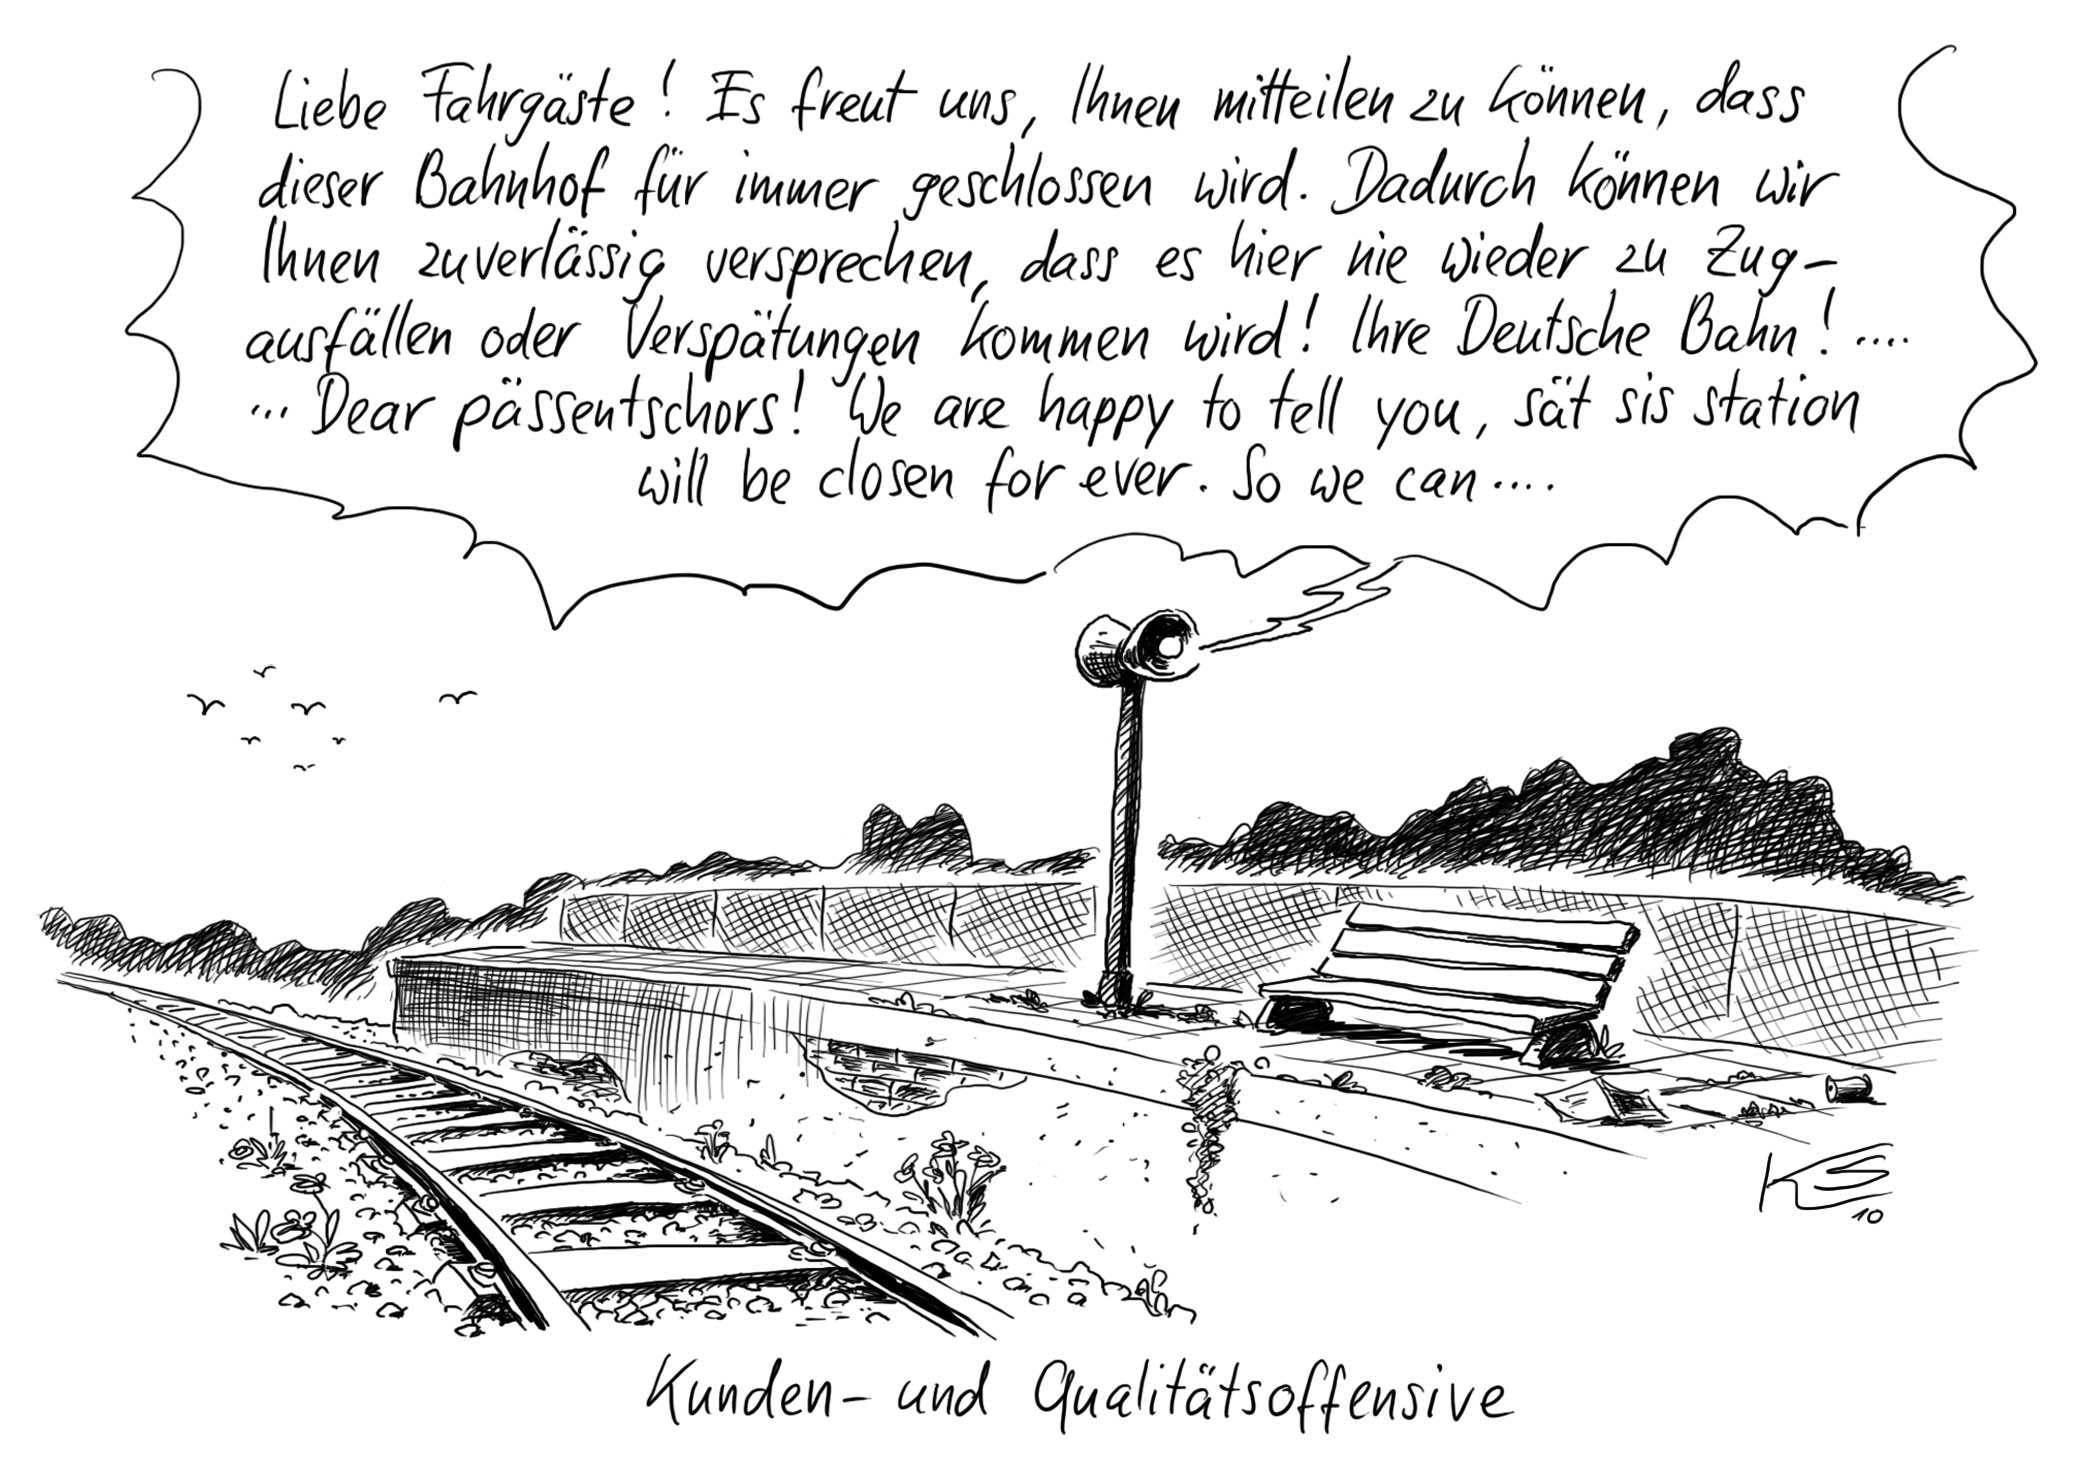 Liebe Fahrgäste! Es freut uns, Ihnen mitteilen zu können, dass
dieser Bahnhof für immer geschlossen wird. Dadurch können wir
Ihnen zuverlässig versprechen, dass es hier nie wieder zu Zug-
ausfällen oder Verspätungen kommen wird! Ihre Deutsche Bahn!....
... Dear pässentschors! We are happy to tell you, sät sis station
will be closen for ever. So we can....
KS
10
Kunden- und Qualitätsoffensive